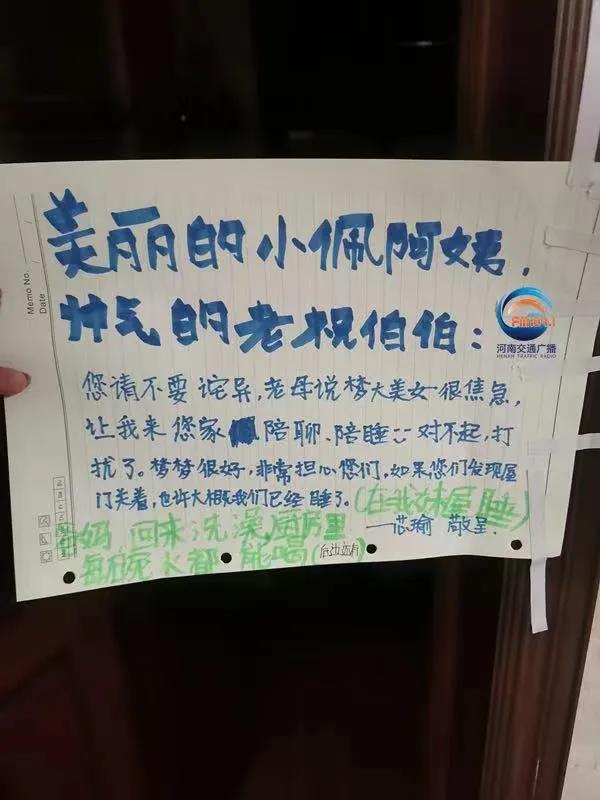 美丽的小佩阿姨,
帅气的老祝伯伯:
FM104.1
河南交通广播
HENAN TRAFFIC RADIO
Memo No.
Date
您请不要诧异,老母说梦大美女很焦急,
让我来您家陪聊、陪睡 对不起,打
扰了。梦梦很好,非常担心您们,如果您们发现屋
门关着,也许大概我们已经睡了。(在我妹屋睡)
—芯瑜 敬呈.
妈 回来洗澡,厨房里
每碗水都能喝